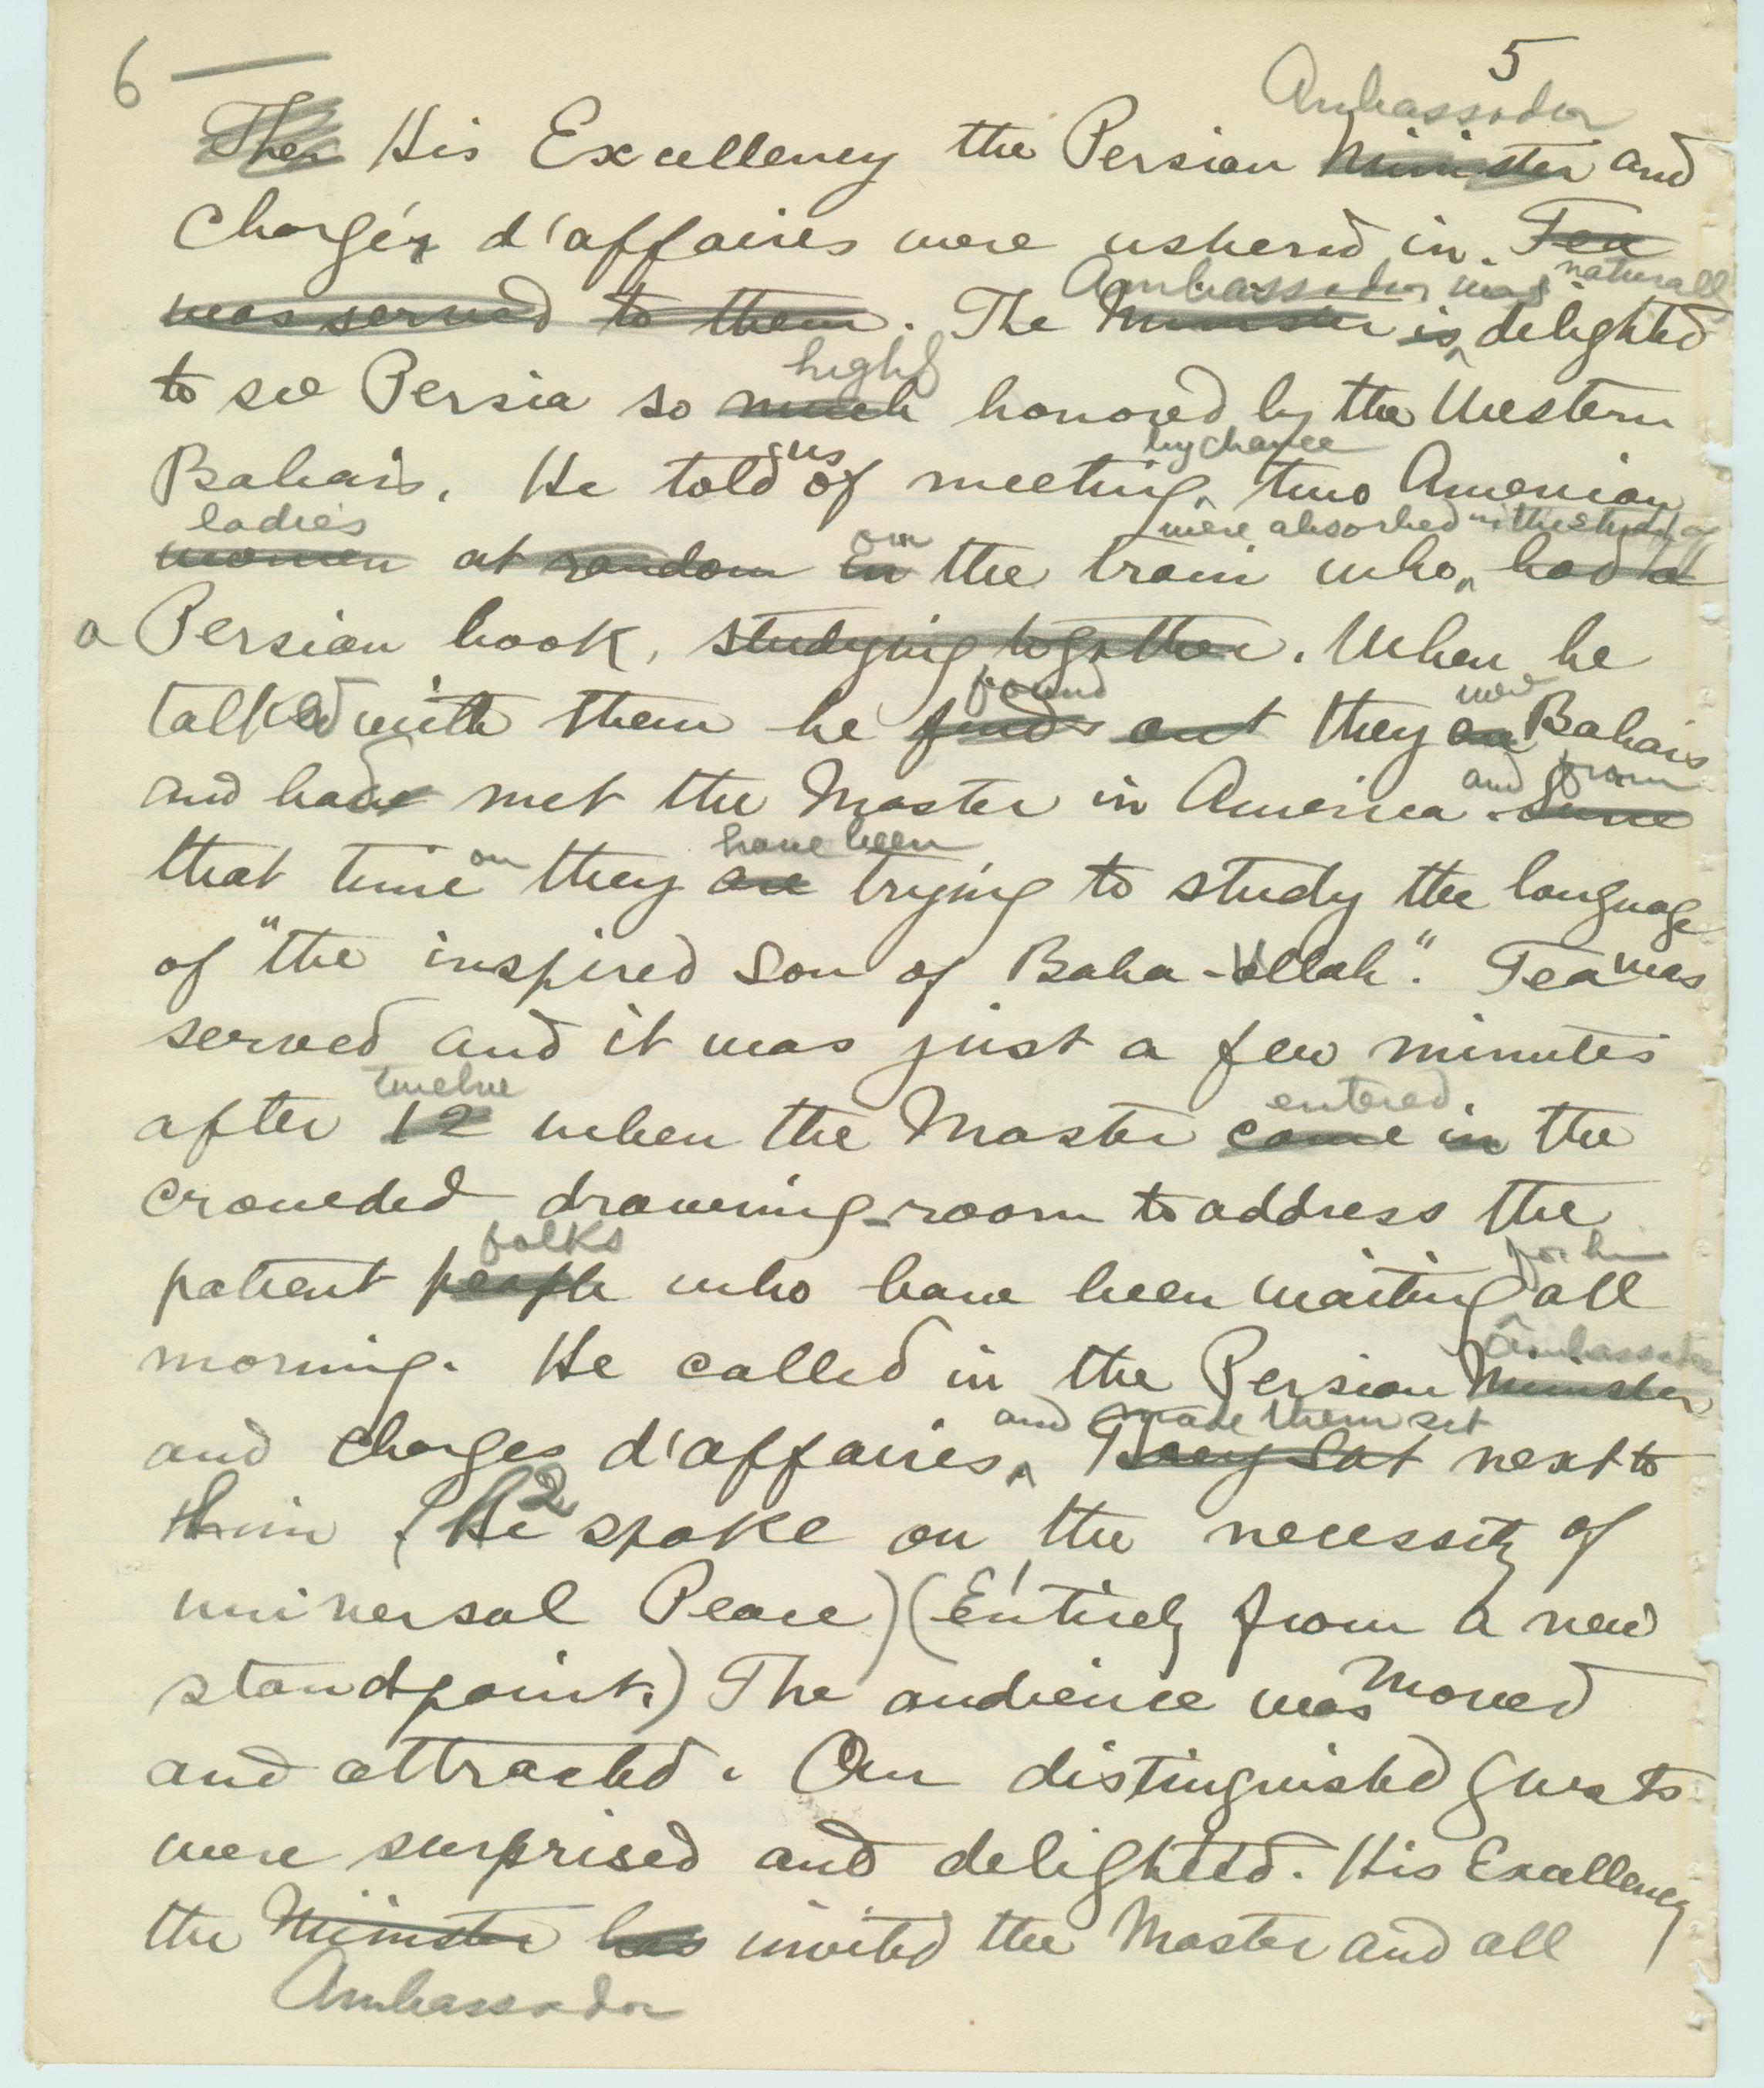 6 — 5
Ambassador
Then His Excellency the Persian Minister and
Chargés d'affaires were ushered in. Tea
Ambassador was naturally
was served to them. The Minister is delighted
highly
to see Persia so much honored by the Western
us by chance
Bahais. He told of meeting two American
ladies on were absorbed in the study of
women at random in the train who had a
a Persian book, studying together. When he
found were
talked with them he finds out they are Bahais
and from
and had met the Master in America. Since
on have been
that time they are trying to study the language
of "the inspired Son of Baha-Ullah". Tea was
served and it was just a few minutes
twelve entered
after 12 when the Master came in the
crowded drawing-room to address the
folks for him
patient people who have been waiting all
Ambassador
morning. He called in the Persian Minister
and made them sit
and Charges d'affaires. They sat next to
2
him. (He spoke on the necessity of
1
universal Peace) (Entirely from a new
standpoint.) The audience was moved
and attracted. Our distinguished guests
were surprised and delighted. His Excellency
the Minister has invited the Master and all
Ambassador